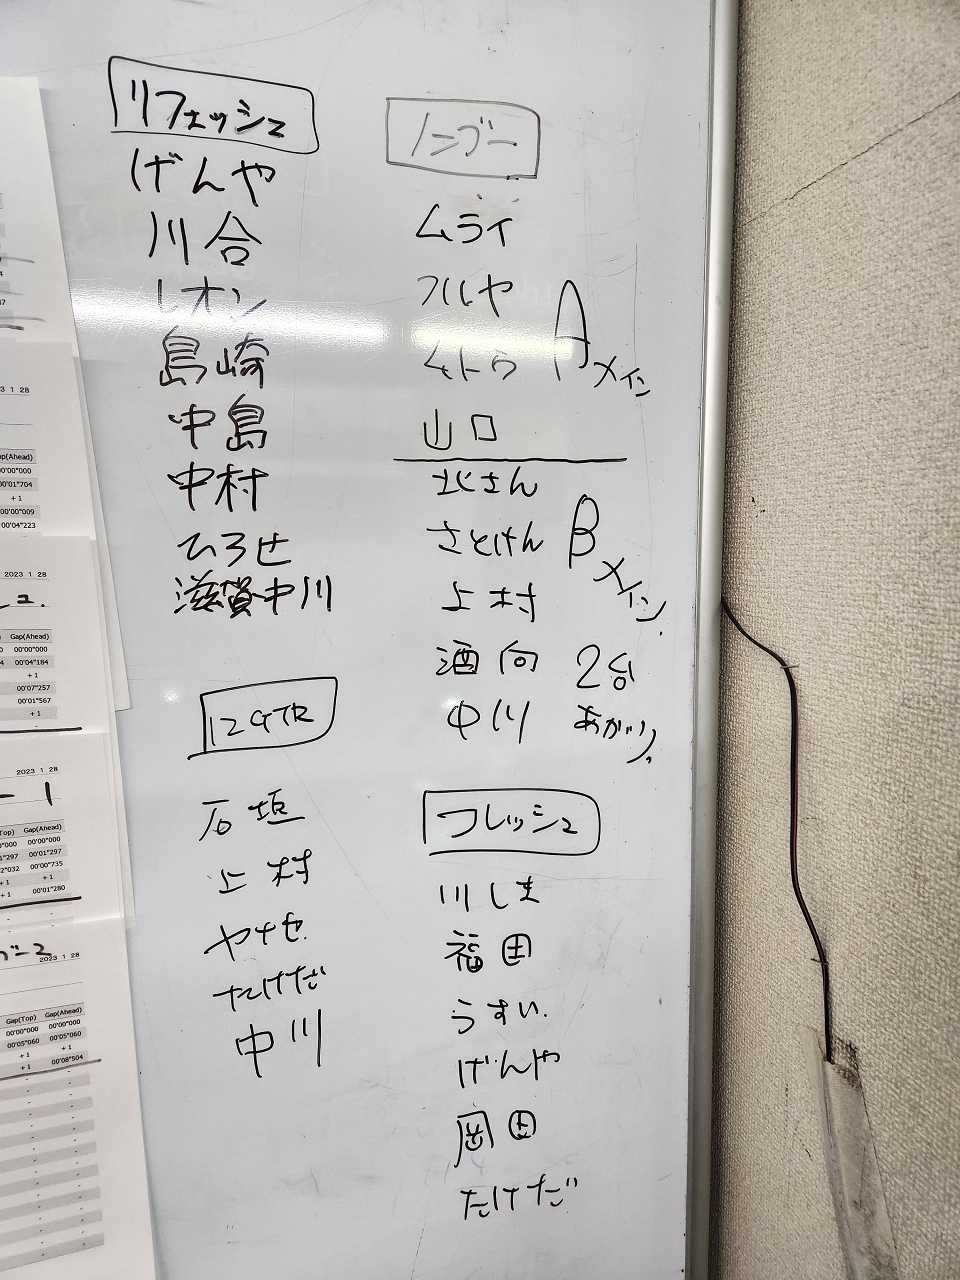 リフェッシュ
げんや
川合
レオン
島崎
中島
中村
ひろせ
滋賀中川
12GTR
石垣
上村
ヤナセ
たけだ
中川
ノーブー
ムライ
フルヤ
ムトウ
山口
Aメイン
北さん
さとけん
上村
酒向
中川
Bメイン
2台
あがり
フレッシュ
川しま
福田
うすい
げんや
岡田
たけだ
3 1 28
p(Ahead)
00'00"000
00'01"704
+ 1
00'00"009
00'04"223
2023 1 28
Gap(Ahead)
00'00"000
00'04"184
+ 1
00'07"257
00'01"567
+ 1
2023 1 28
ー 1
Top) Gap(Ahead)
"000 00'00"000
1"297 00'01"297
2"032 00'00"735
+ 1 + 1
+ 1 00'01"280
ブー2
2023 1 28
Gap(Top) Gap(Ahead)
00'00"000 00'00"000
00'05"060 00'05"060
+ 1 + 1
+ 1 00'08"504